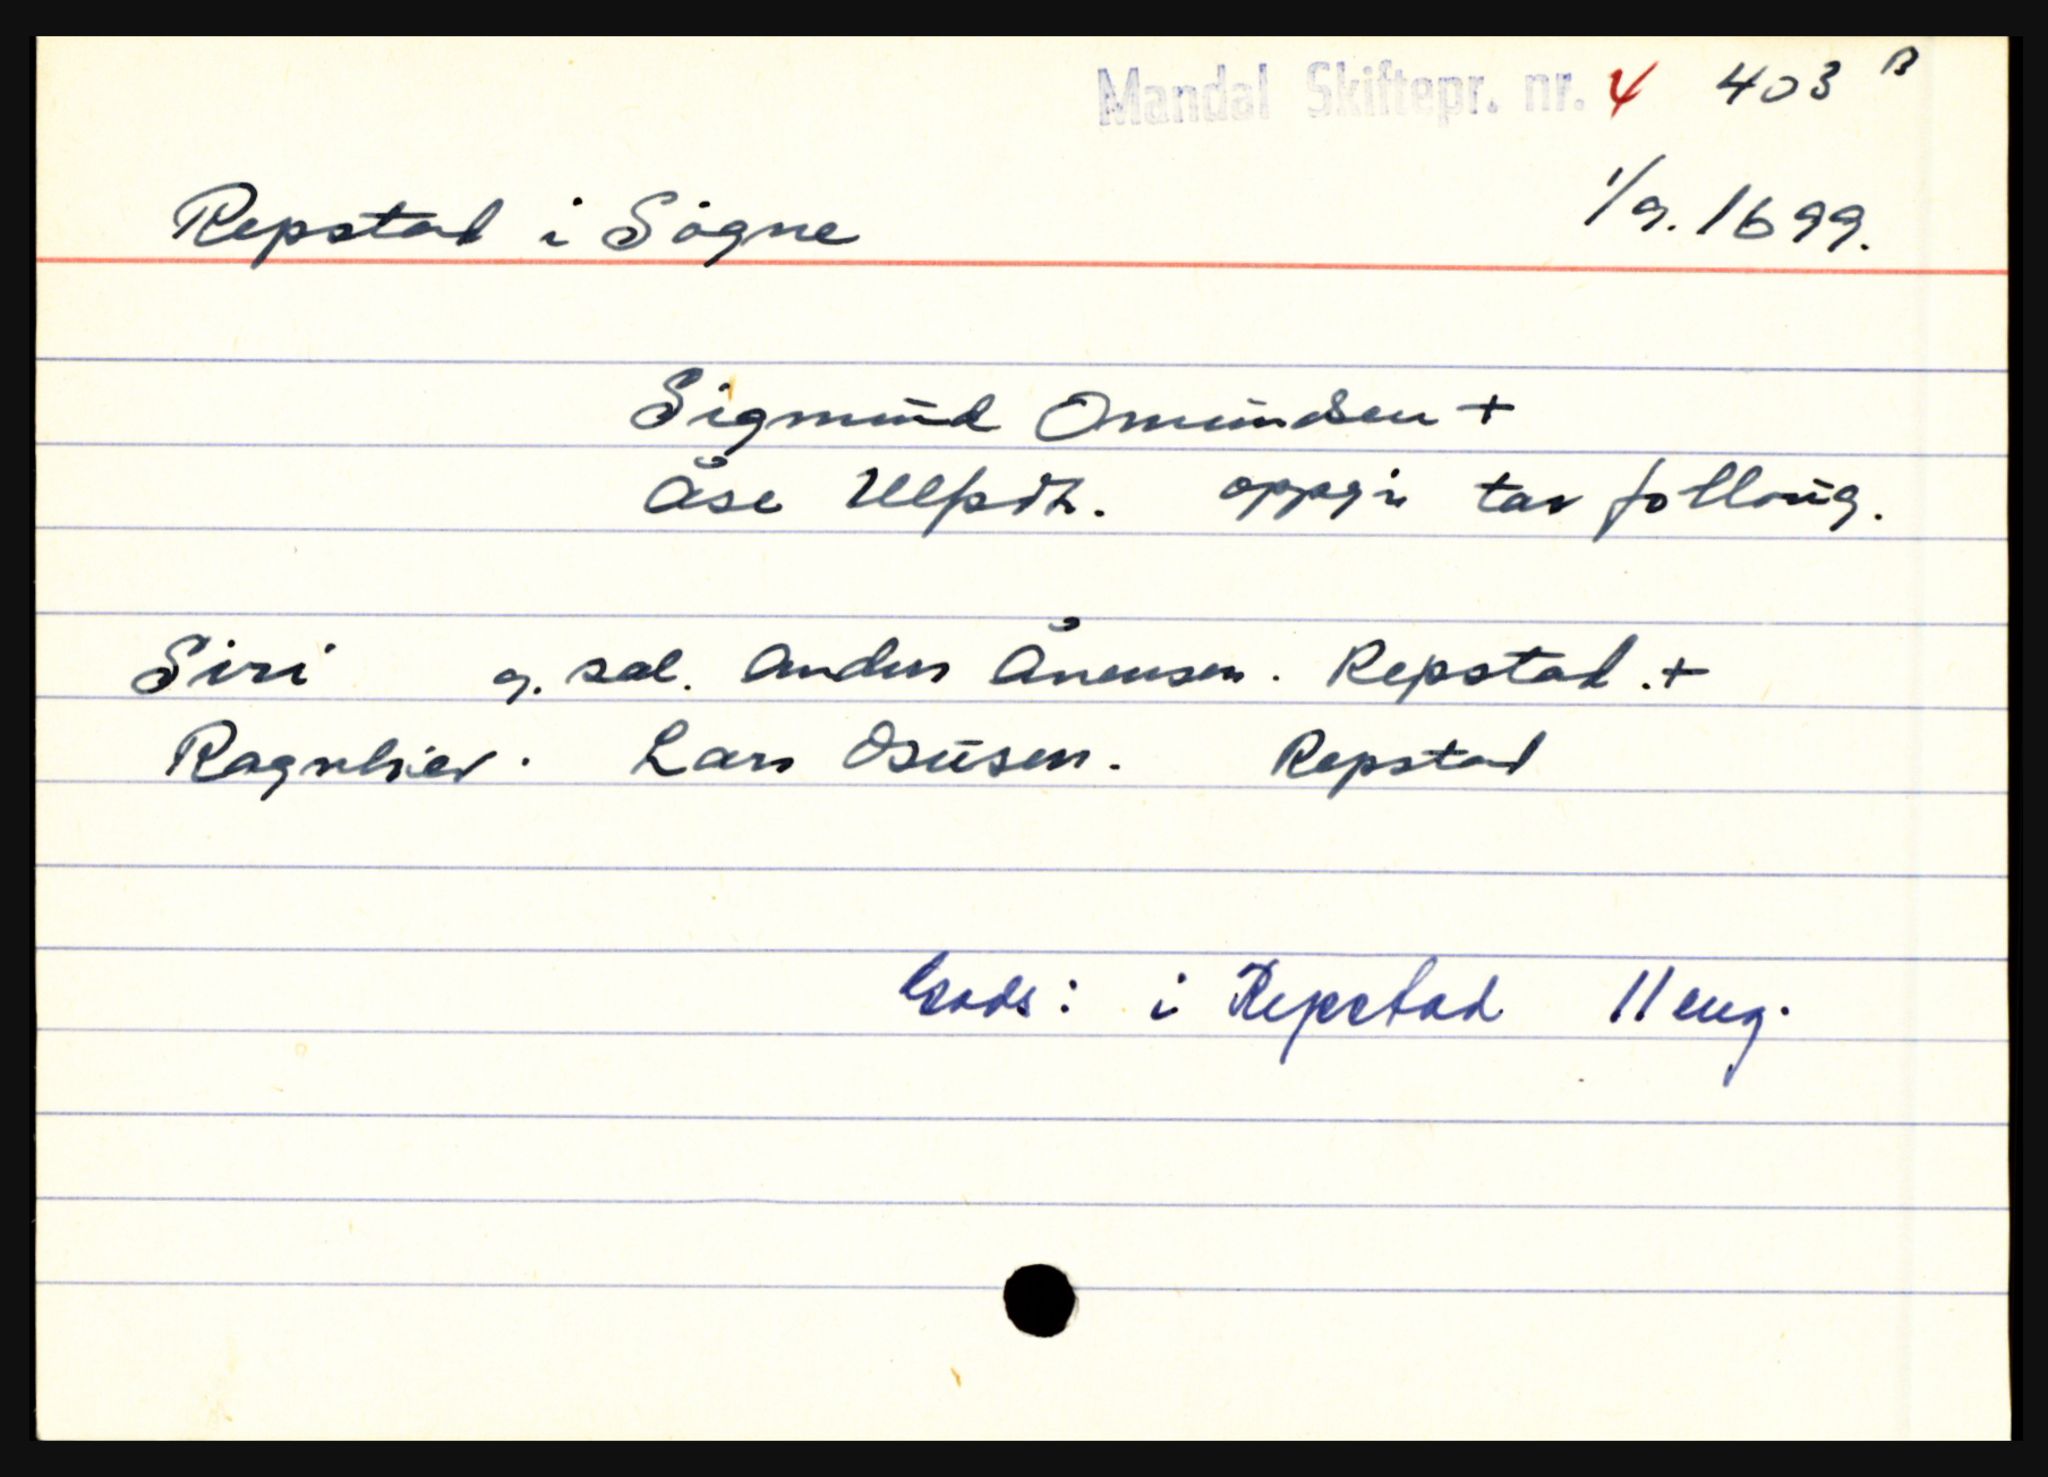 Mandal Skiftepr. nr. 4 403 B
1/9. 1699.
Repstad i Søgne
Sigmund Omundsen +
Åse Ulfsdt. oppgir tar follaug.
Siri g. sal. Anders Ånensen. Repstad. +
Ragnhild. Lars Osusen. Repstad
Gods: i Repstad 11 eng.